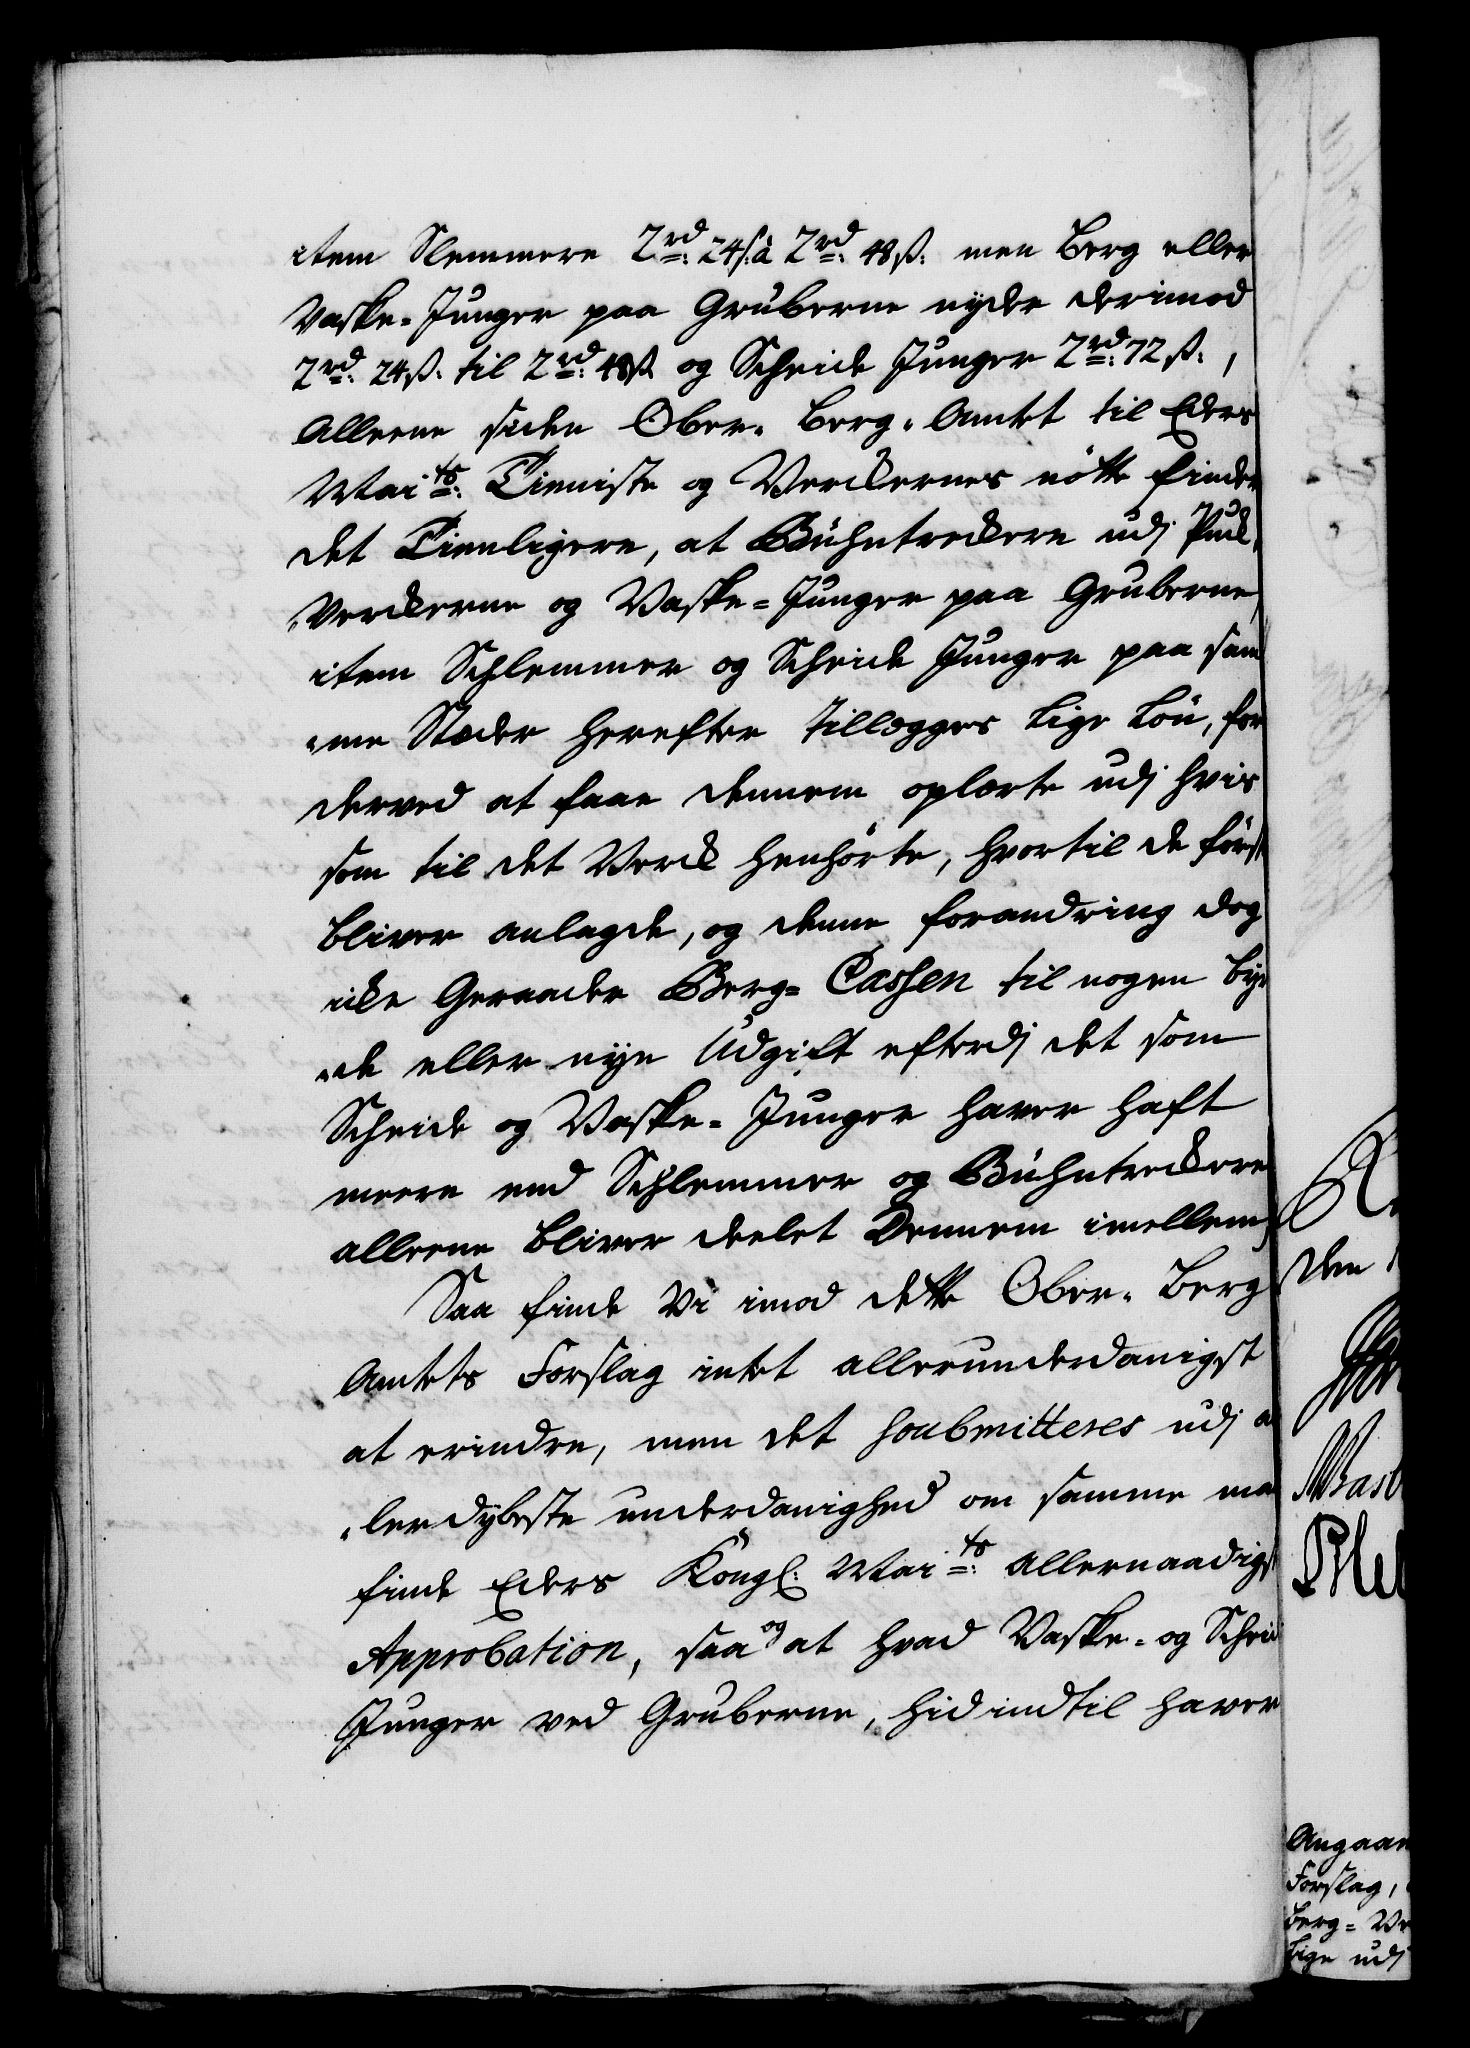 item Slemmere 2rd: 24ß: à 2rd: 48ß: men Berg eller
Vaske-Junger paa Gruberne nyder derimod
2rd: 24ß: til 2rd: 48ß og Scheide Junger 2rd: 72ß:,
Alleene siden Ober-Berg-Amtet til Eders
Maits: Tienniste og Werckernes nötte finder
det Tienligere, at Bühntreckere udj Puck,
„Werckerne og Vaske-Junger paa Gruberne,
item Schlemmer og Scheide Junger paa sam
„me Stæder herefter tillægges lige Løn, for
derved at faae dennem oplærte udj hvis
som til det Verck henhörte, hvortil de först
bliver anlagde, og denne forandring dog
icke Geraader Berg-Cassen til nogen byr
„de eller nye Udgift efterdj det som
Scheide og Vaske-Junger haver haft
meere end Schlemmer og Bühntreckere
alleene bliver deelet Dennem imellem;
Saa finde Vi imod dette Ober-Berg
Amtets Forslag intet allerunderdanigst
at erindre, men det soubmitteres udj a
„lerdybeste underdanighed om samme ma
finde Eders Kongl: Maits: Allernaadigst
Approbation, saa og at hvad Vaske- og Scheid
Junger ved Gruberne, hid indtil haver
den
Angaan
Forslag,
Berg-We
lige udj